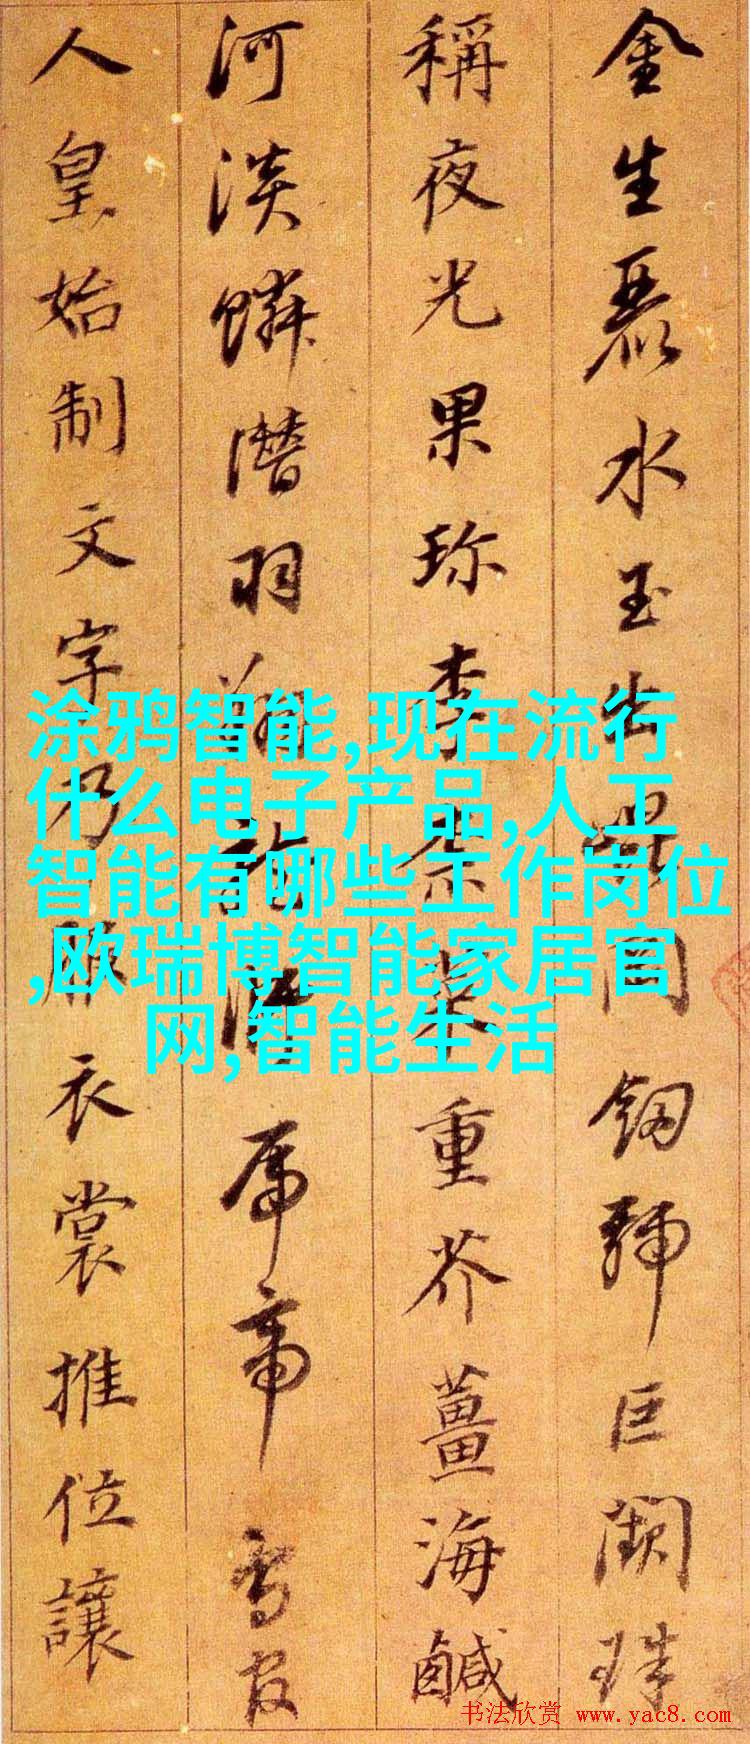 金生麗水玉出崐岡釼號巨闕珠
稱夜光果珎李柰菜重芥薑海鹹
河淡鱗潛羽翔龍帝鳥官
人皇始制文字乃服衣裳推位讓
涂鸦智能,现在流行
什么电子产品,人工
智能有哪些工作岗位
,欧瑞博智能家居官
网,智能生活
书法欣赏 www.yac8.com